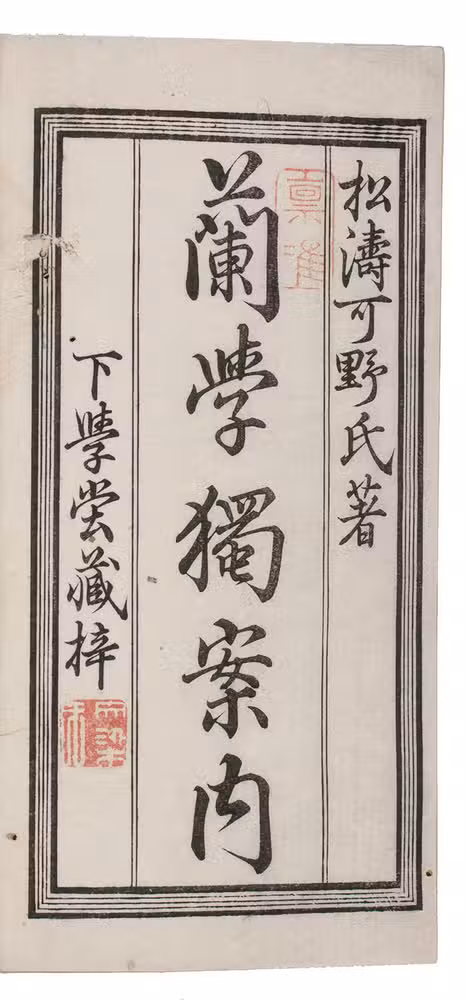 松濤可野氏著
蘭學獨案内
下學堂藏梓